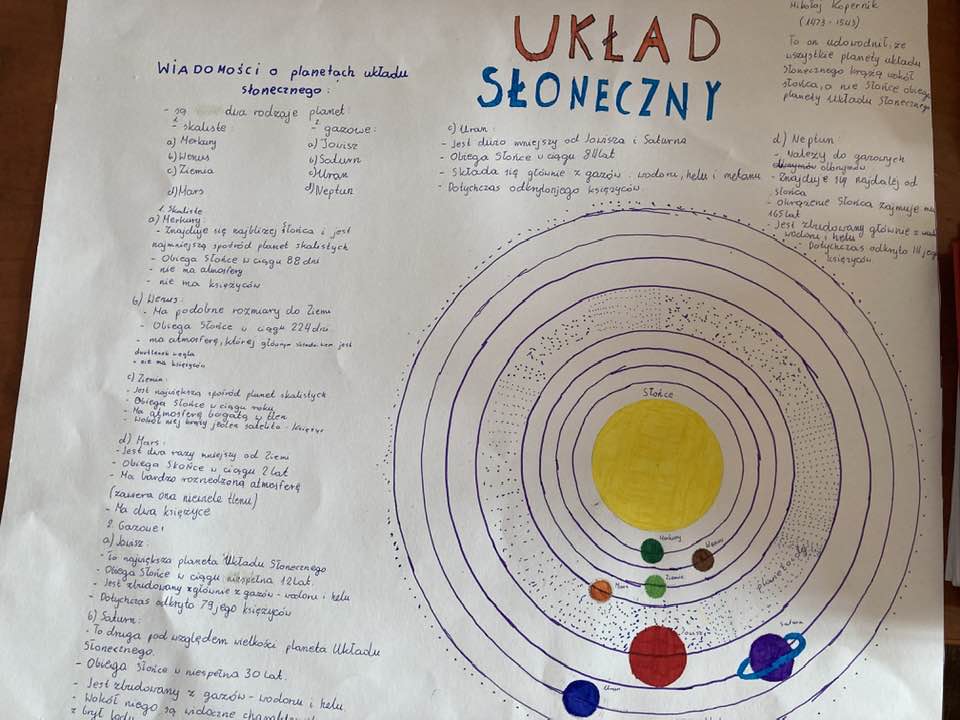 UKŁAD
SŁONECZNY
Mikołaj Kopernik
(1473 - 1543)
To on udowodnił, że
wszystkie planety układu
słonecznego krążą wokół
słońca, a nie słońce obiega
planety Układu Słonecznego
WIADOMOŚCI o planetach układu
słonecznego:
- są dwa rodzaje planet:
1 - skaliste:
a) Merkury
b) Wenus
c) Ziemia
d) Mars
2 - gazowe:
a) Jowisz
b) Saturn
c) Uran
d) Neptun
1. Skaliste
a) Merkury:
- Znajduje się najbliżej słońca i jest
najmniejszą spośród planet skalistych
- Obiega Słońce w ciągu 88 dni
- nie ma atmosfery
- nie ma księżyców
b) Wenus:
- Ma podobne rozmiary do Ziemi
- Obiega Słońce w ciągu 224 dni
- ma atmosferę, której głównym składnikiem jest
dwutlenek węgla
- nie ma księżyców
c) Ziemia:
- Jest największą spośród planet skalistych
- Obiega Słońce w ciągu roku
- Ma atmosferę bogatą w tlen
- Wokół niej krąży jeden satelita - Księżyc
d) Mars:
- Jest dwa razy mniejszy od Ziemi
- Obiega Słońce w ciągu 2 lat
- Ma bardzo rozrzedzoną atmosferę
(zawiera ona niewiele tlenu)
- Ma dwa księżyce
2. Gazowe:
a) Jowisz:
- To największa planeta Układu Słonecznego
- Obiega Słońce w ciągu niespełna 12 lat.
- Jest zbudowany głównie z gazów - wodoru i helu
- Dotychczas odkryto 79 jego księżyców
b) Saturn:
- To druga pod względem wielkości planeta Układu
Słonecznego.
- Obiega Słońce w niespełna 30 lat.
- Jest zbudowany z gazów - wodoru i helu.
- Wokół niego są widoczne
z brył lodu
c) Uran:
- Jest dużo mniejszy od Jowisza i Saturna
- Obiega Słońce w ciągu 84 lat
- Składa się głównie z gazów: wodoru, helu i metanu
- Dotychczas odkryto jego księżyców.
d) Neptun
- Należy do gazowych
olbrzymów
- Znajduje się najdalej od
słońca
- Okrążenie Słońca zajmuje mu
165 lat
- Jest zbudowany głównie z
wodoru i helu
- Dotychczas odkryto 14 jego
księżyców.
Słońce
Merkury
Wenus
Mars
Ziemia
planetoidy
Jowisz
Saturn
Uran